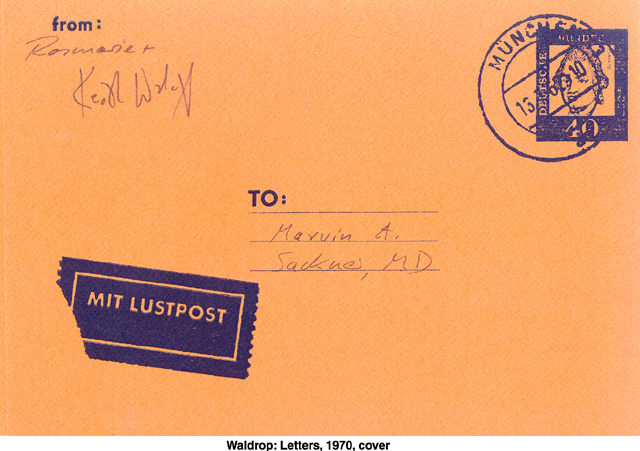 from:
Rosmarie +
Keith Waldrop
MÜNCHEN
DEUTSCHE
BUNDES
40
TO:
Marvin A.
Sackner, MD
MIT LUSTPOST
Waldrop: Letters, 1970, cover